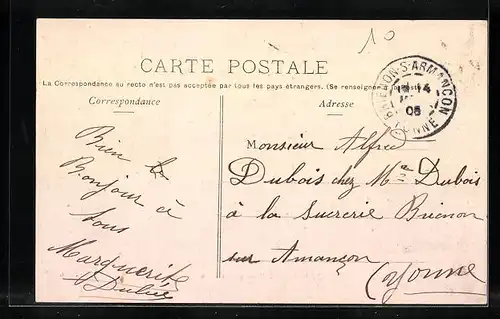 10
CARTE POSTALE
La Correspondance au recto n'est pas acceptée par tous les pays étrangers. (Se renseigner
Correspondance
Adresse
BRIENON-S-ARMANÇON
14
05
YONNE
Bien le
Bonjour à
tous
Marguerite
Monsieur Alfred
Dubois chez Mme Dubois
à la Sucrerie Brienon
sur Amançon
(Yonne